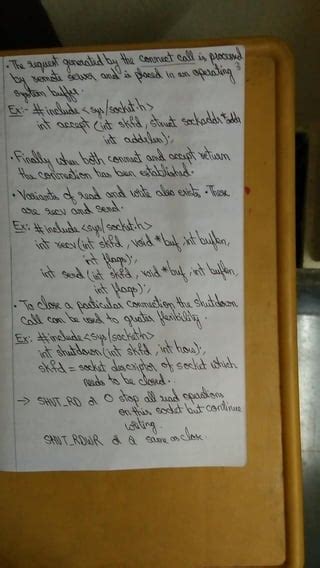 • The request generated by the connect call is processed
by remote server and is placed in an operating
system buffer.
Ex:- #include <sys/socket.h>
int accept (int skfd, struct sockaddr *addr
int addrlen);
• Finally when both connect and accept return
the connection has been established.
• Variants of read and write also exists. These
are recv and send.
Ex: #include <sys/socket.h>
int recv (int skfd, void *buf, int buflen,
int flags);
int send (int skfd, void *buf, int buflen,
int flags);
• To close a particular connection the shutdown
call can be used to greater flexibility.
Ex: #include <sys/socket.h>
int shutdown (int skfd, int how);
skfd = socket descriptor of socket which
needs to be closed.
→ SHUT_RD or 0 stop all read operations
on this socket but continue
writing.
SHUT_RDWR or 2 same as close